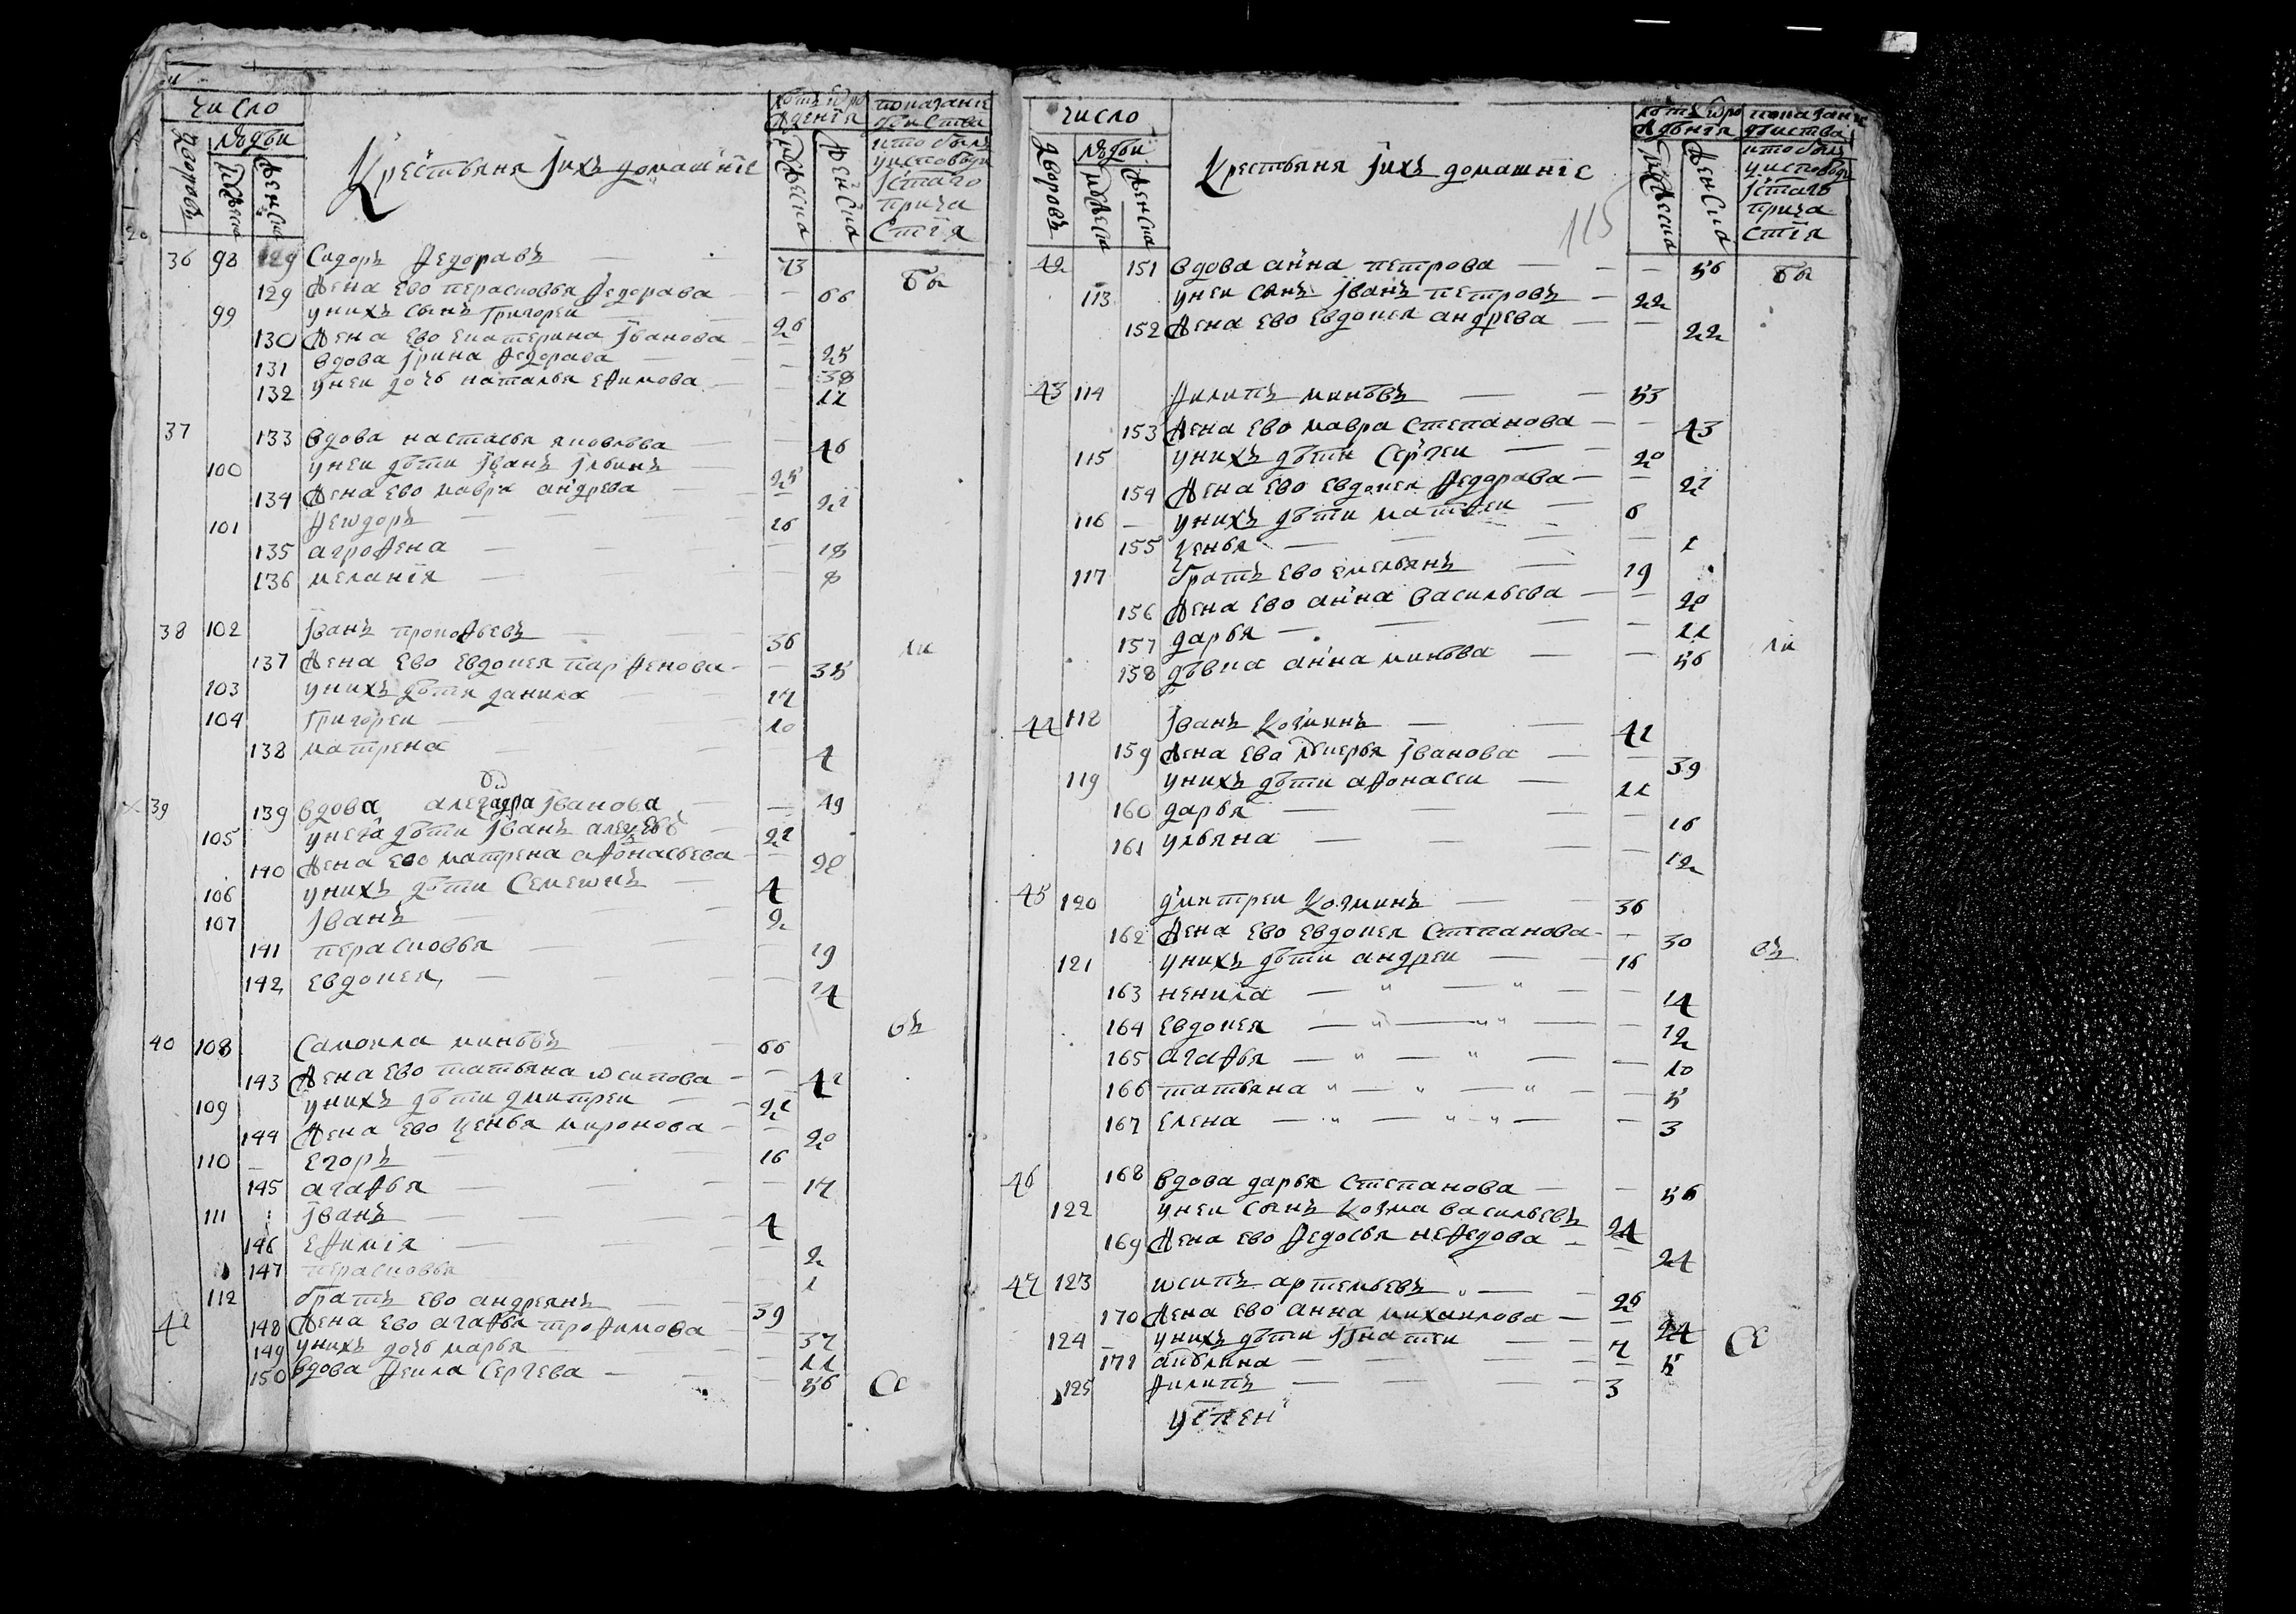 число
людьи
дворовъ
мужеска
женска
Крестьяня јихъ домашніе
лѣтъ ѿро
жденїя
мужеска
женска
показание
дѣиства
кто былъ
уисповѣди
јстаго
прича
стїя
36 98 129 Сидоръ Федоравъ — 73 бы
129 жена ево перасковья федорава — 66
99 унихъ сынъ григореи — 26
130 жена ево екатерина јванова — 25
131 вдова јрина федорава — 38
132 унеи дочь наталья ефимова — 11
37 133 вдова настасья яковлѣва — 46
100 унеи дѣти јванъ јльинъ — 25
134 жена ево мавра андрева — 22
101 Феѡдоръ — 16
135 агрофена — 18
136 меланїя — 8
38 102 јванъ прокофьевъ — 36 ли
137 жена ево евдокея парфенова — 35
103 унихъ дѣти данила — 17
104 григореи — 10
138 матрена — 4
39 139 вдова јванова — 49
105 дѣти јванъ — 22
140 жена ево матрена афонасьева — 20
106 унихъ дѣти Семеѡнъ — 4
107 јванъ — 2
141 перасковья — 19
142 евдокея — 14
въ
40 108 Самоила минѣвъ — 66
143 жена ево татьяна ѡсипова — 42
109 унихъ дѣти дмитреи — 22
144 жена ево ѯенья миронова — 20
110 — егоръ — 16
145 агафья — 17
111 јванъ — 4
146 ефимїя — 2
147 перасковья — 1
112 братъ ево андреянъ — 39
41 148 жена ево агафья трофимова — 37
149 унихъ дочь марья — 11
150 вдова фекла Сергева — 56 се
число
людьи
дворовъ
мужеска
женска
Крестьяня јихъ домашнїе
115
лѣтъ ѿро
жденїя
мужеска
женска
показание
дѣиства
кто былъ
уисповѣди
јстаго
прича
стїя
42 151 вдова анна петрова — 56 бы
113 унеи сынъ јванъ петровъ — 22
152 жена ево евдокея андрева — 22
43 114 филипъ минѣвъ — 53
153 жена ево мавра Степанова — 43
115 унихъ дѣти Сергеи — 20
154 жена ево евдокея федорава — 22
116 — унихъ дѣти матфеи — 6
155 ѯенья — 1
117 братъ ево емельянъ — 19
156 жена ево анна васильева — 20
157 дарья — 11
158 дѣвка анна минѣва — 56 ли
44 118 јванъ козминъ — 41
159 жена ево лукерья јванова — 39
119 унихъ дѣти афонасеи — 11
160 дарья — 16
161 ульяна — 12
45 120 дмитреи козминъ — 36
162 жена ево евдокея Степанова — 30 въ
121 унихъ дѣти андреи — 16
163 ненила — 14
164 евдокея — 12
165 агафья — 10
166 татьяна — 5
167 елена — 3
46 168 вдова дарья степанова — 56
122 унеи сынъ козма васильевъ 24
169 жена ево федосья нефедова — 24
47 123 ѡсипъ артемьевъ — 26
170 жена ево анна михаилова — 24 се
124 унихъ дѣти јгнатеи — 7
171 акѣлина — 5
125 филипъ — 3
успен